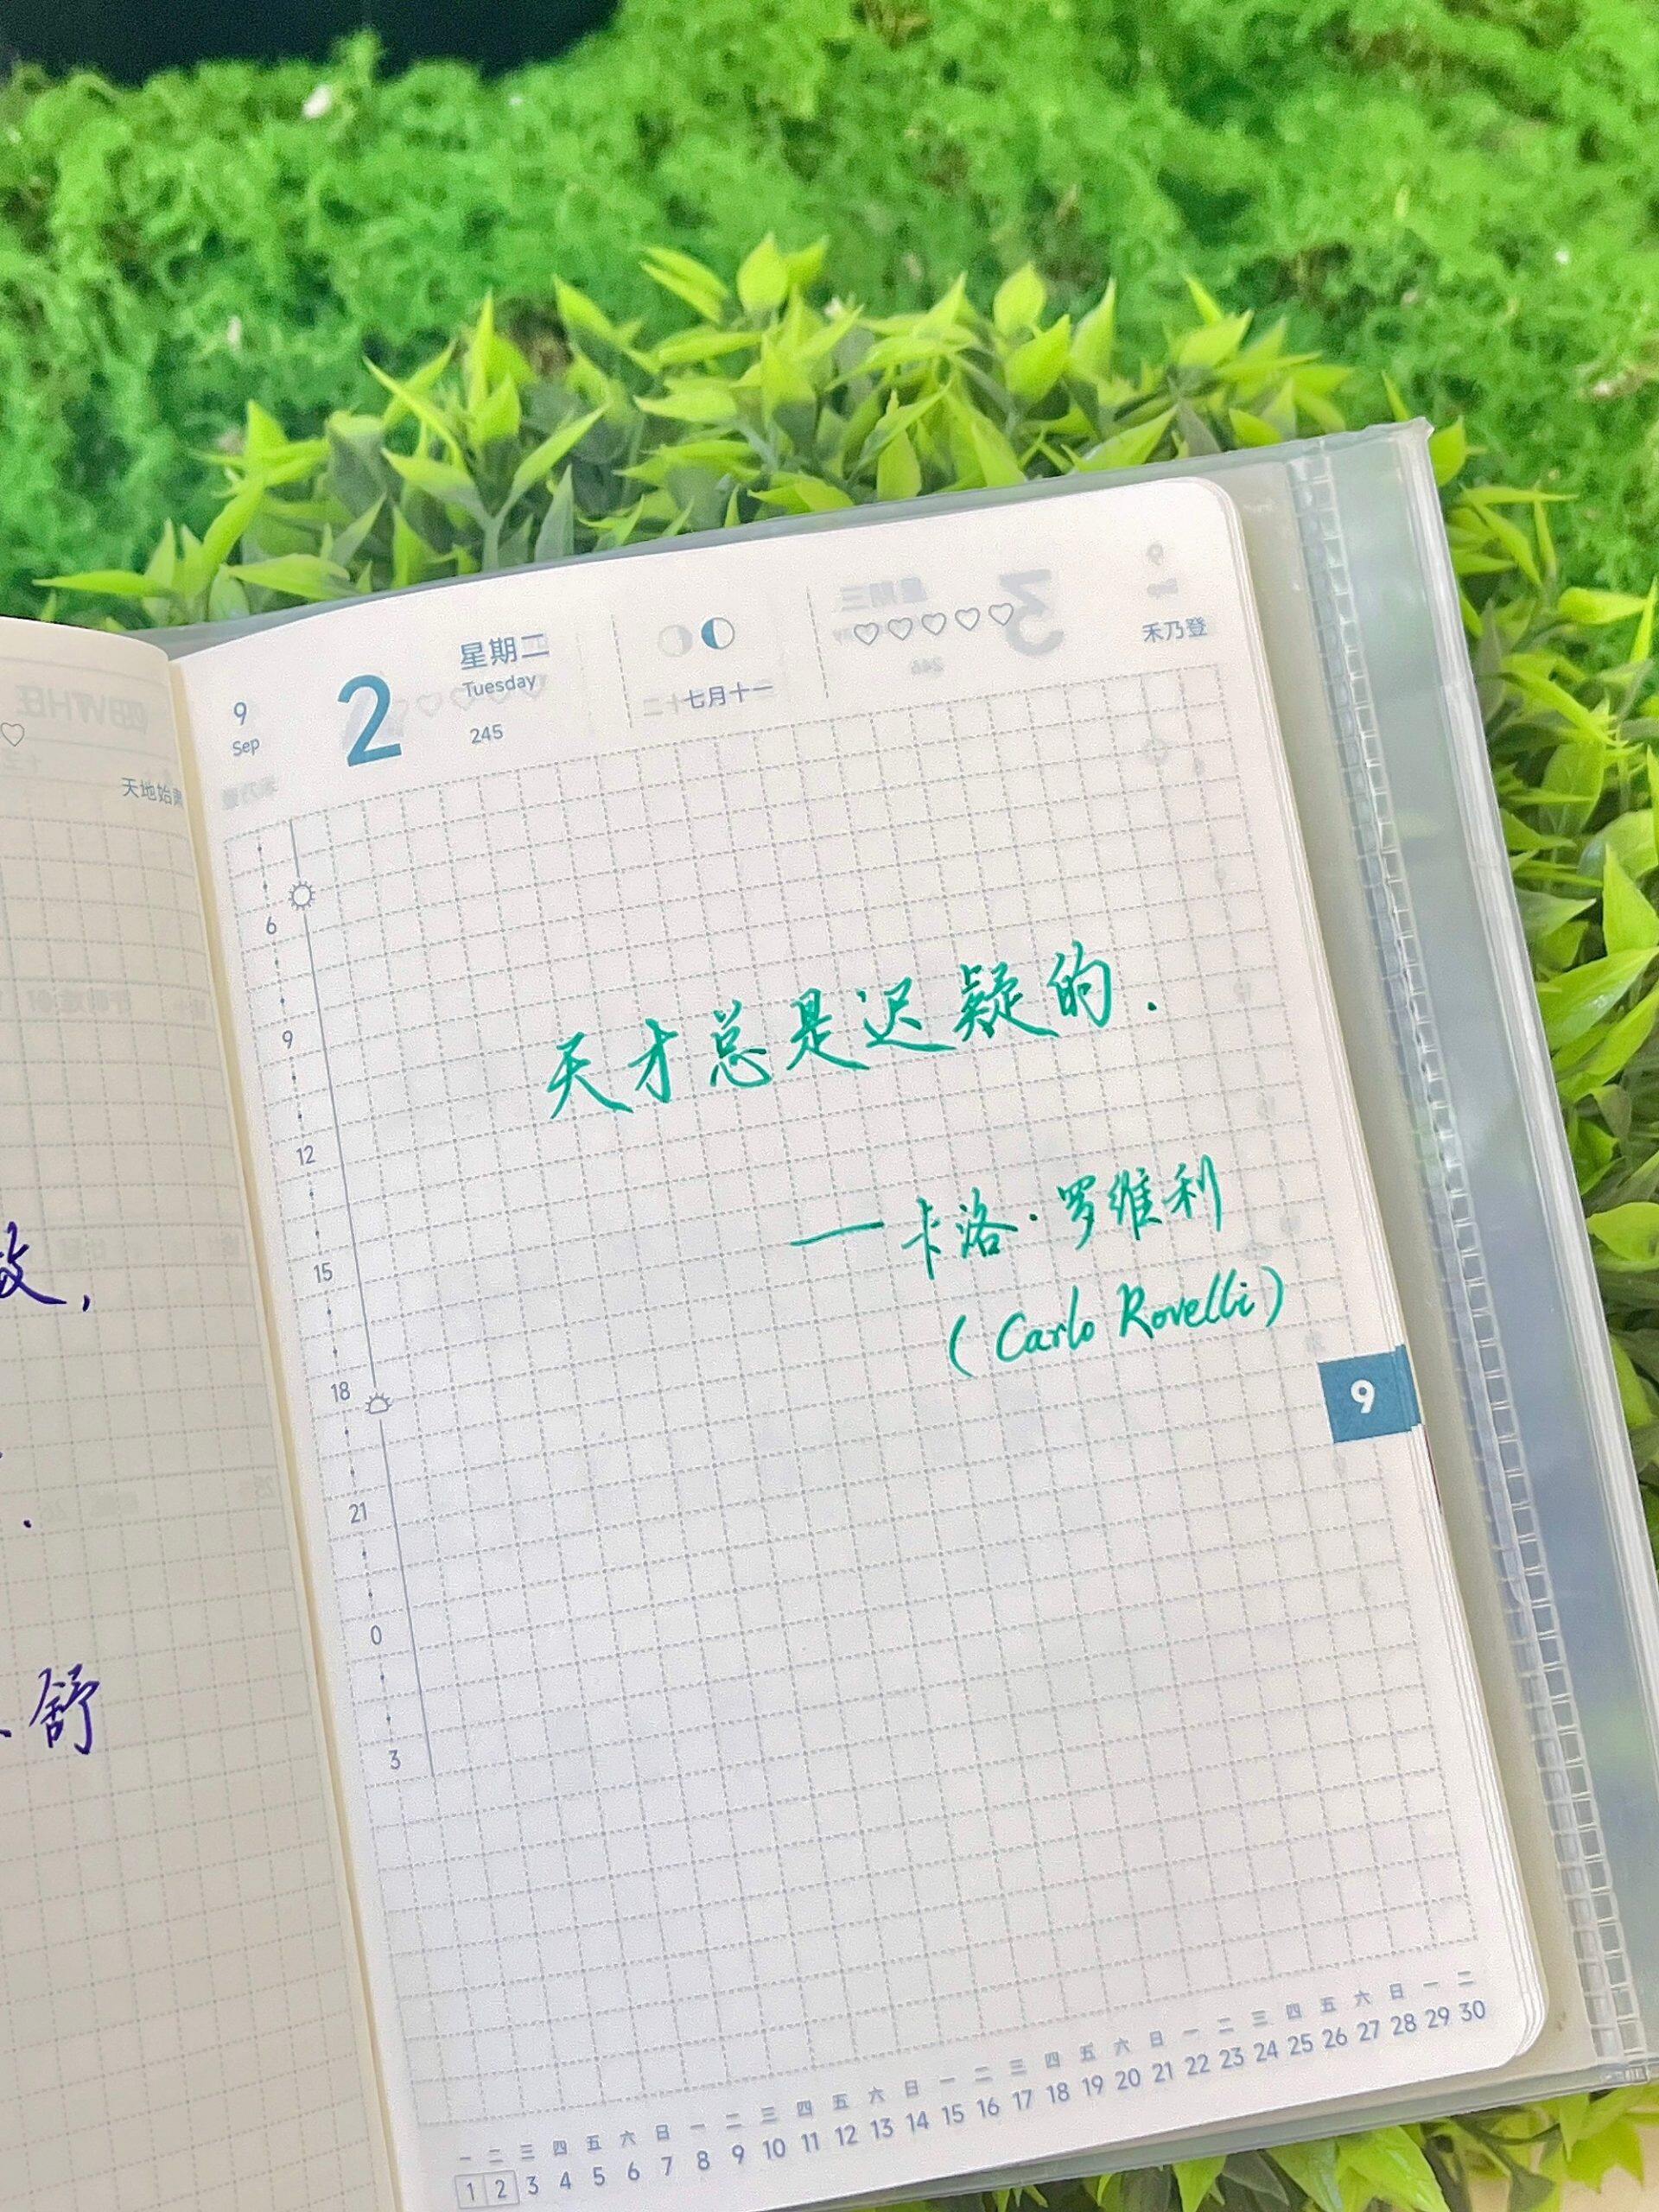 天地始肃
致，
舒
9
Sep
2
星期二
Tuesday
245
七月十一
禾乃登
6
9
12
15
18
21
0
3
天才总是迟疑的.
——卡洛·罗维利
(Carlo Rovelli)
9
一 二 三 四 五 六 日 一 二 三 四 五 六 日 一 二 三 四 五 六 日 一 二 三 四 五 六 日 一 二
1 2 3 4 5 6 7 8 9 10 11 12 13 14 15 16 17 18 19 20 21 22 23 24 25 26 27 28 29 30